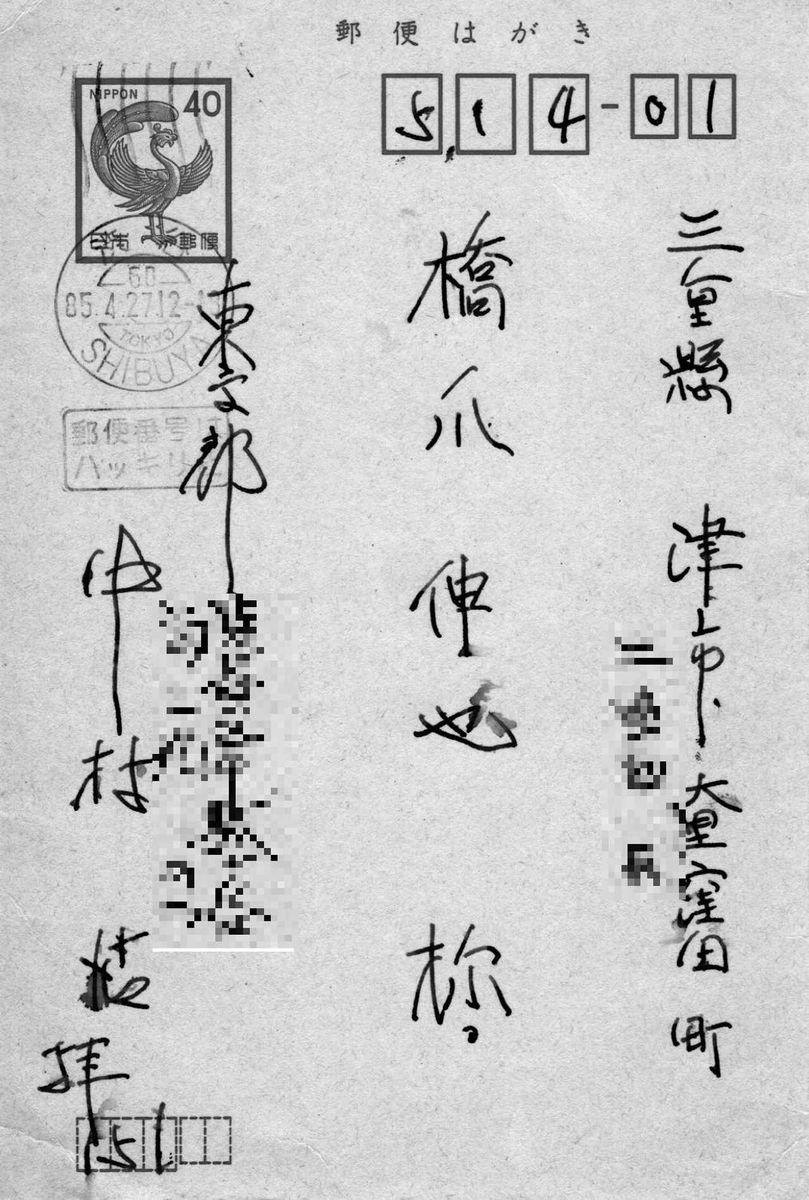 郵便はがき
514-01
三重縣 津市大里窪田町
橋爪伸也
様
NIPPON 40
日本郵便
60
85.4.27.12-
TOKYO
SHIBUYA
郵便番号は
ハッキリ
東京都
中村
拝
151